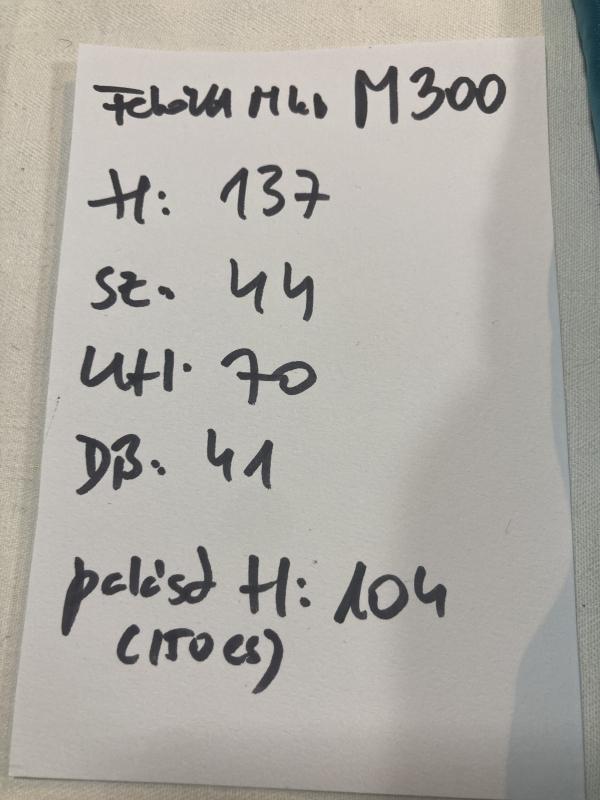 Fehér M300
H: 137
SZ. 44
DB. 41
palást H: 104
(150 es)